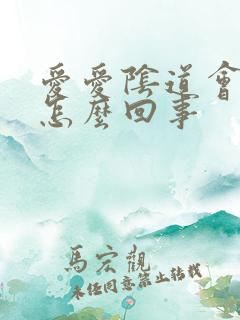 愛愛陰道會
怎麼回事
馬宏觀
未経同意禁止轉載